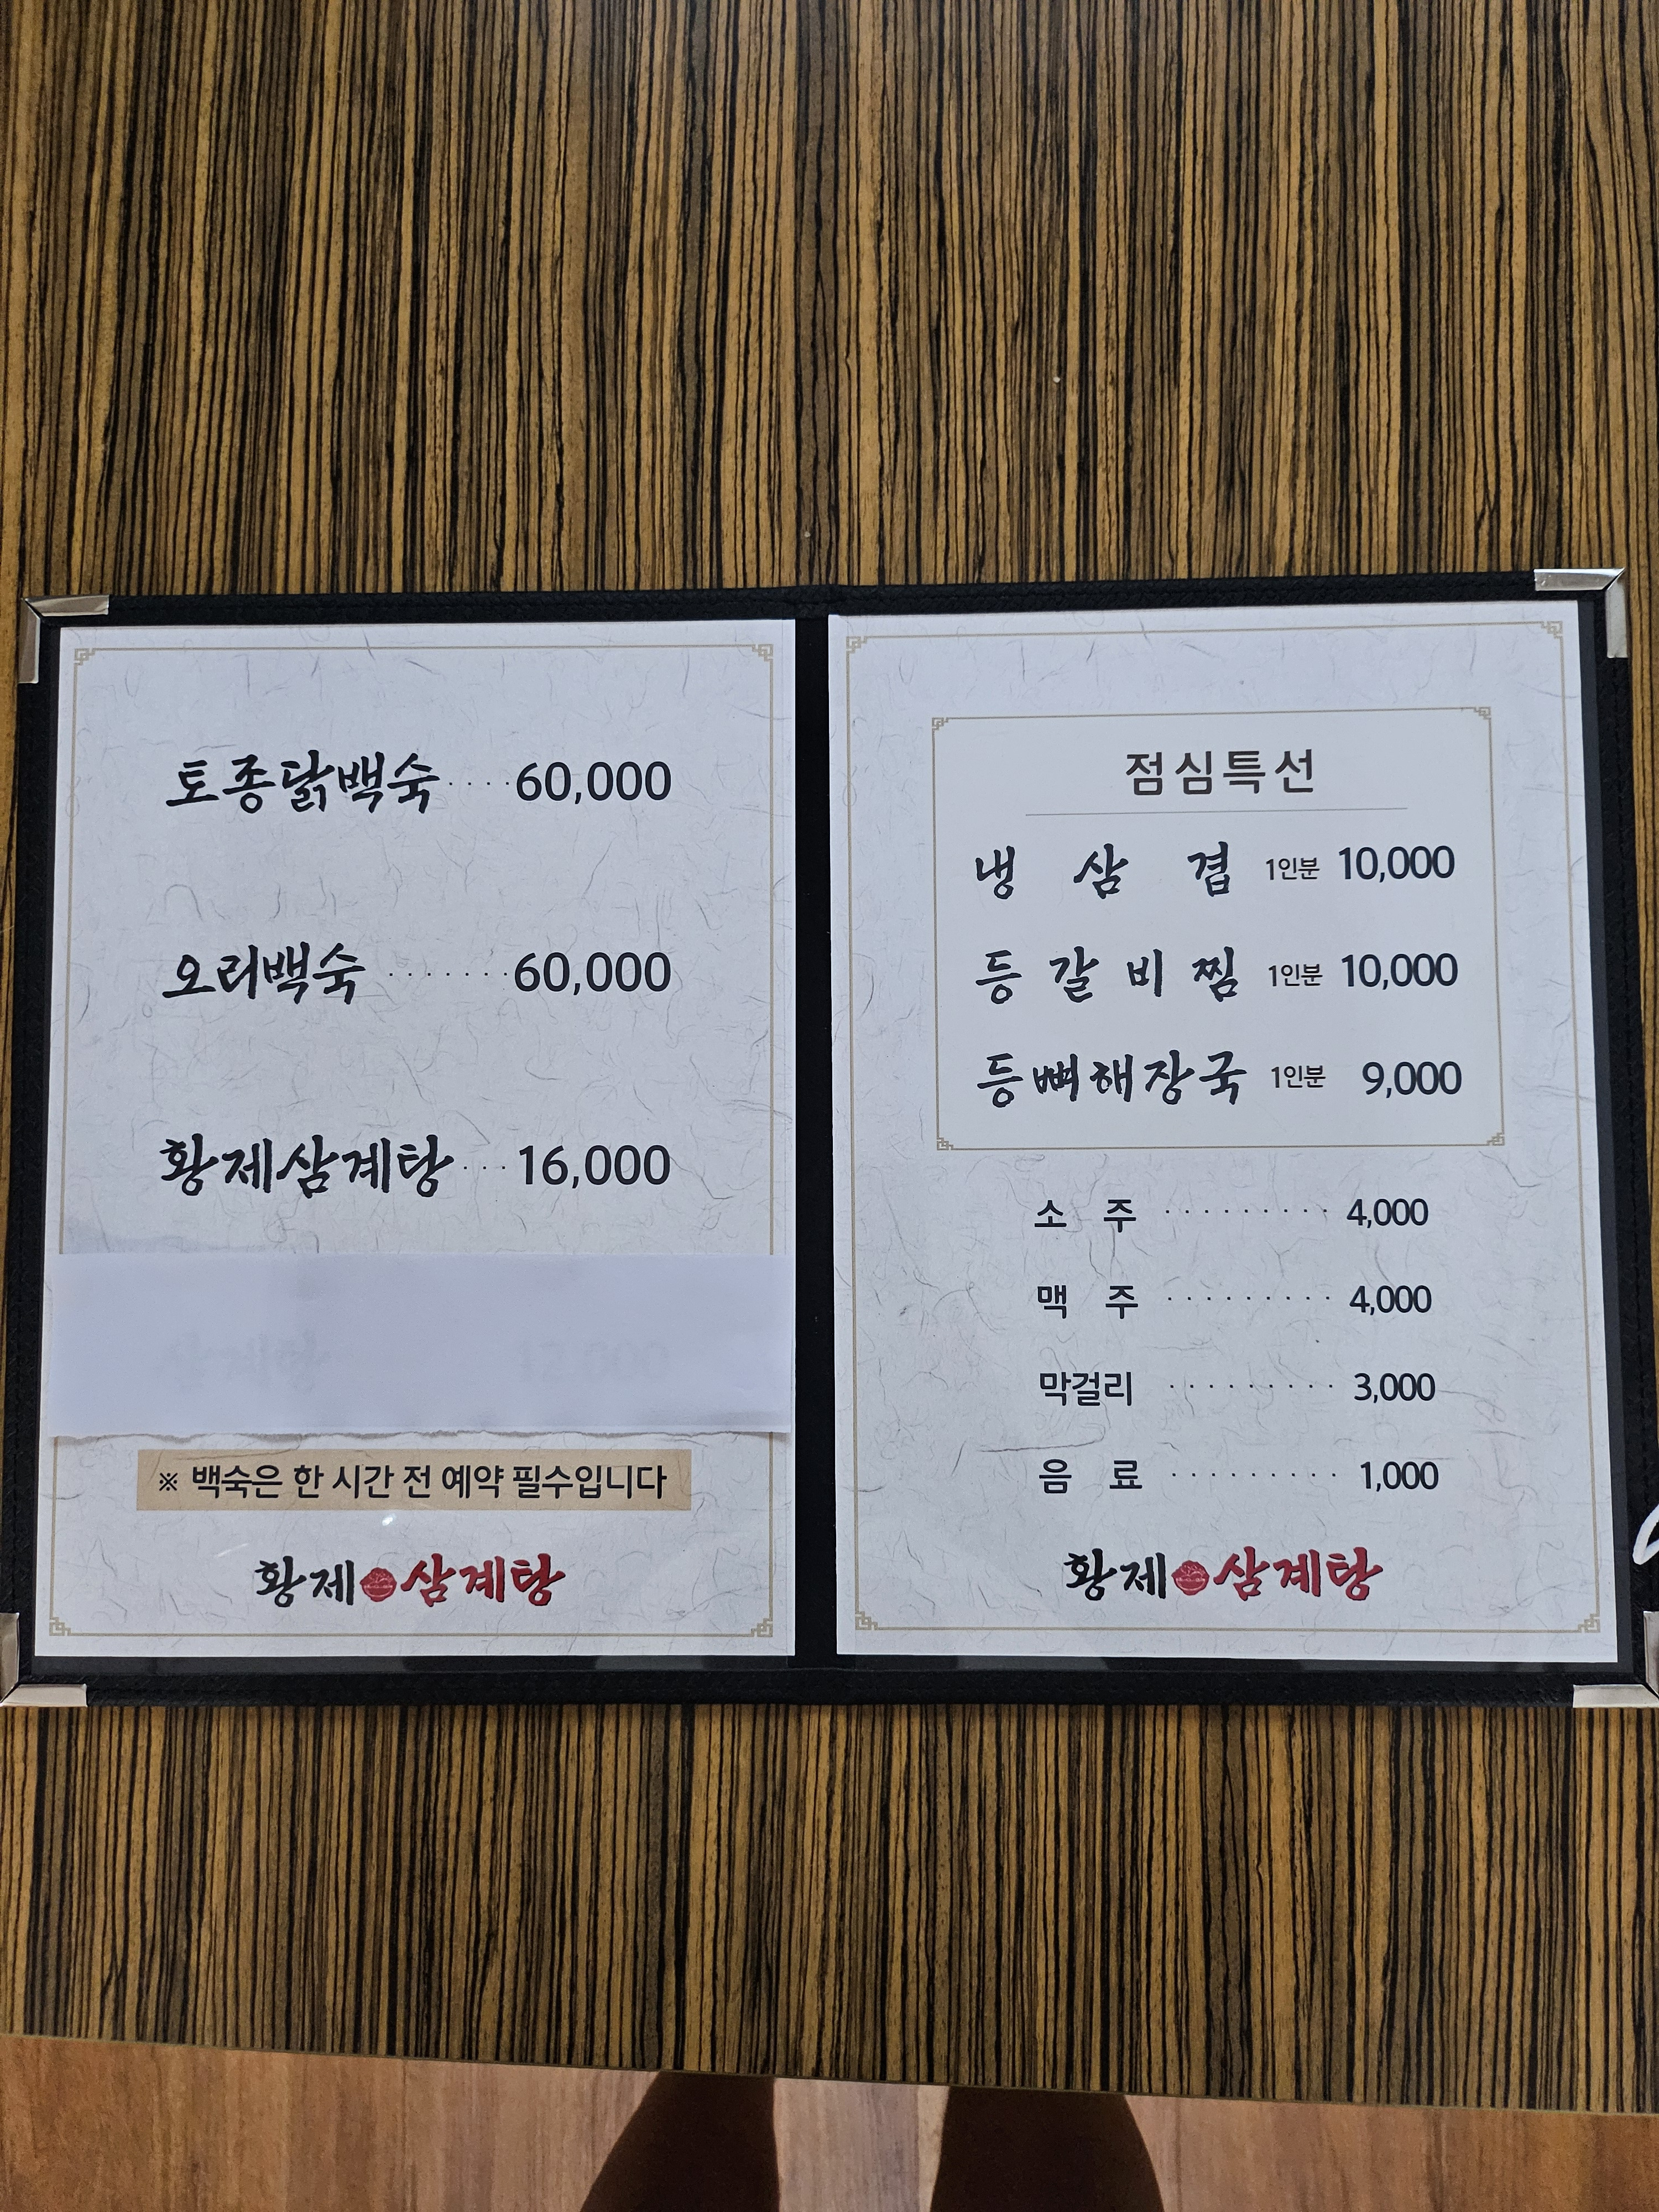 토종닭백숙 ···· 60,000
오리백숙 ······· 60,000
황제삼계탕 ··· 16,000
※ 백숙은 한 시간 전 예약 필수입니다
황제 삼계탕
점심특선
냉 삼 겹 1인분 10,000
등 갈 비 찜 1인분 10,000
등뼈해장국 1인분 9,000
소 주 ········· 4,000
맥 주 ········· 4,000
막걸리 ········· 3,000
음 료 ········· 1,000
황제 삼계탕